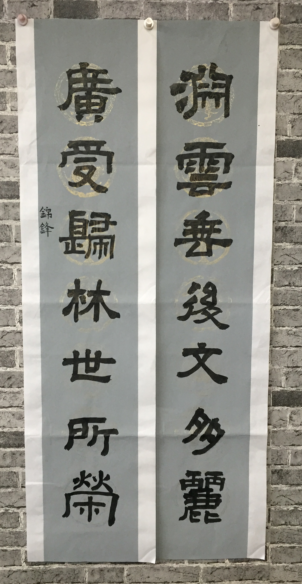 淵雲垂後文多麗
廣受歸林世所榮
錦鋒